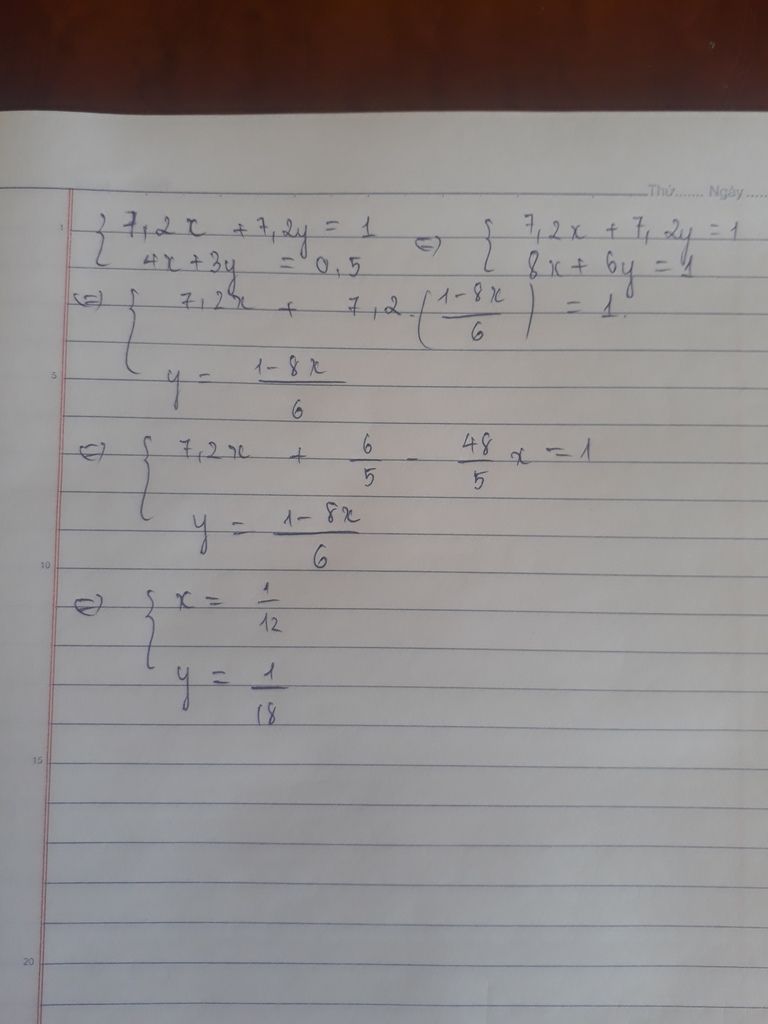 Thứ....... Ngày.....
1 { 7,2x + 7,2y = 1 ⇔ { 7,2x + 7,2y = 1
4x + 3y = 0,5 8x + 6y = 1
⇔ { 7,2x + 7,2.(1-8x/6) = 1.
5 y = 1-8x/6
⇔ { 7,2x + 6/5 - 48/5 x = 1
y = 1-8x/6
10
⇔ { x = 1/12
y = 1/18
15
20